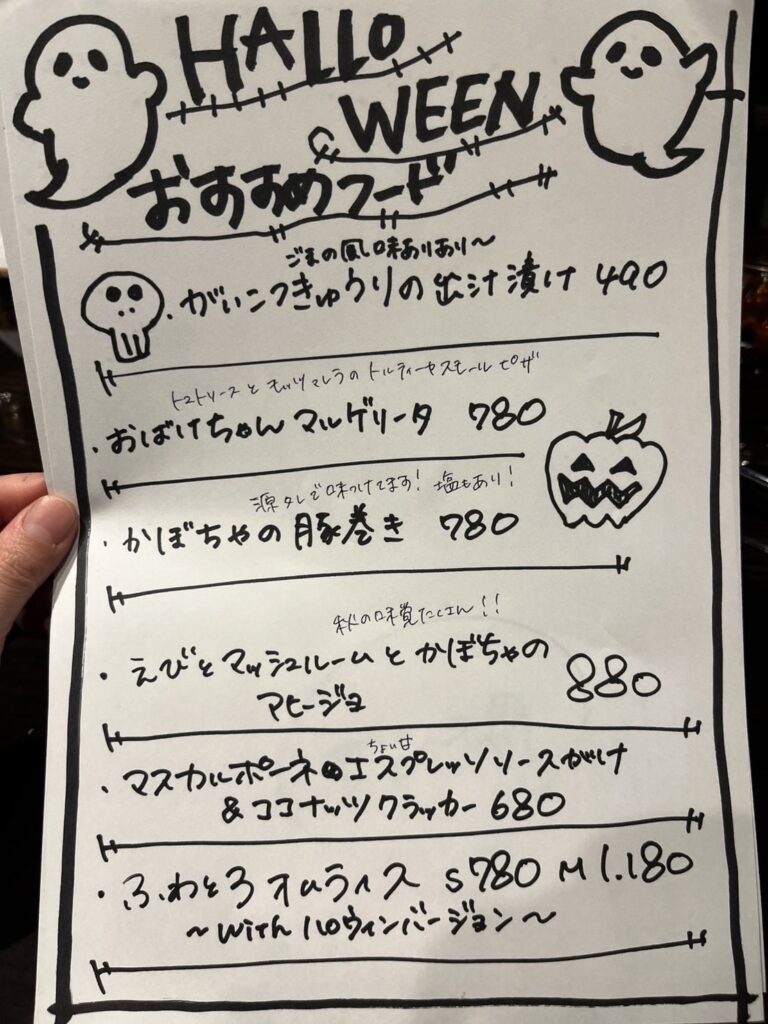 HALLO
WEEN
おすすめフード
ごまの風味ありあり〜
・がいこつきゅうりの出汁漬け 490
トマトソースとモッツァレラのトルティーヤスモールピザ
・おばけちゃんマルゲリータ 780
源タレで味つけてます! 塩もあり!
・かぼちゃの豚巻き 780
秋の味覚たくさん!!
・えびとマッシュルームとかぼちゃの
アヒージョ 880
・マスカルポーネのエスプレッソソースがけ
&ココナッツクラッカー 680
・ふわとろオムライス S780 M1.180
〜withハロウィンバージョン〜